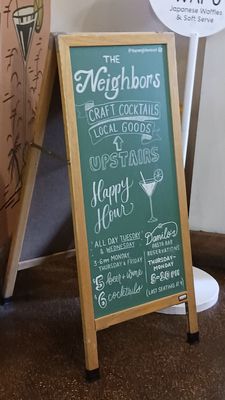 WAFU
Japanese Waffles
& Soft Serve
THE
Neighbors
CRAFT COCKTAILS
LOCAL GOODS
UPSTAIRS
Happy
Hour
ALL DAY TUESDAY
& WEDNESDAY
3-6PM MONDAY
THURSDAY & FRIDAY
$5 beer + wine
$6 cocktails
Danilo's
PASTA BAR
RESERVATIONS
THURSDAY-
MONDAY
(LAST SEATING AT 8)